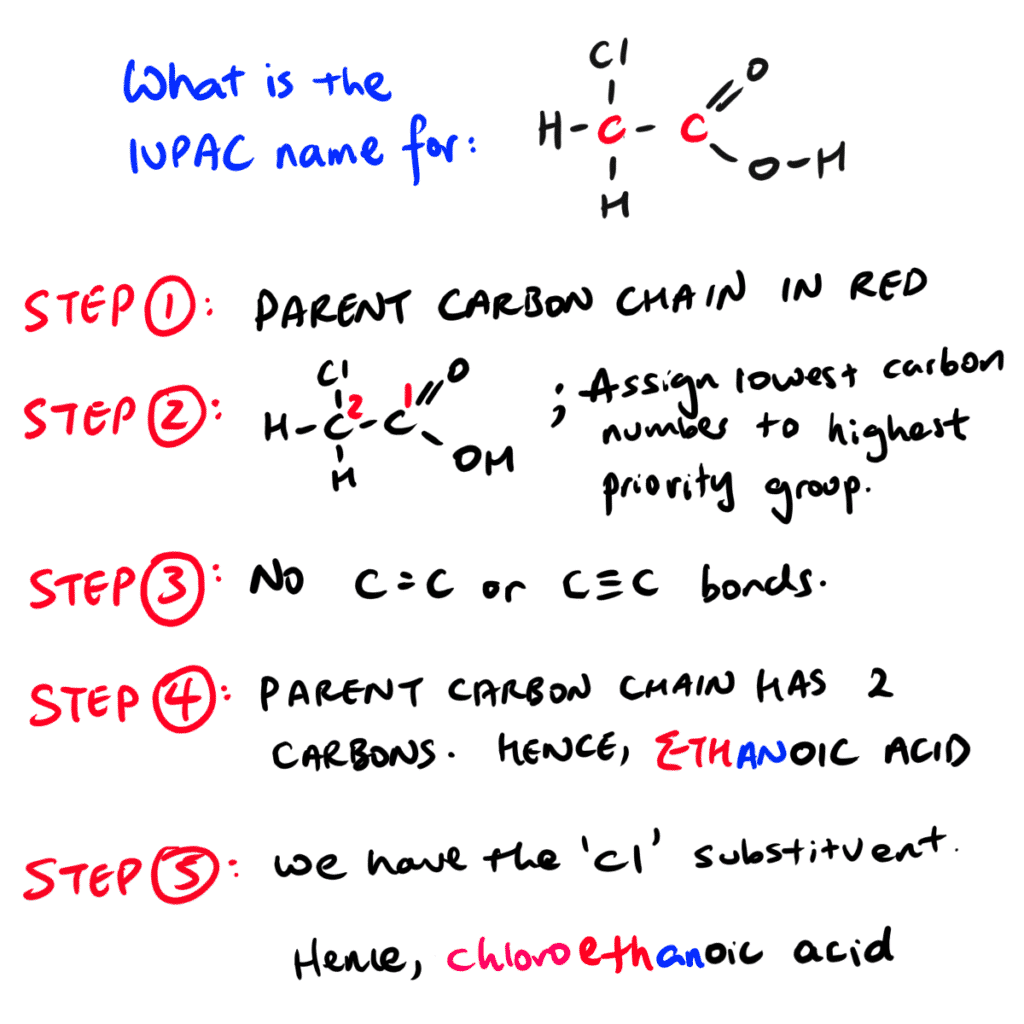 What is the
IUPAC name for:
Cl
H-C-C=O
O-H
H
STEP 1: PARENT CARBON CHAIN IN RED
STEP 2: ; Assign lowest carbon
number to highest
priority group.
Cl
H-C2-C1=O
OH
H
STEP 3: No C=C or C≡C bonds.
STEP 4: PARENT CARBON CHAIN HAS 2
CARBONS. HENCE, ETHANOIC ACID
STEP 5: we have the 'Cl' substituent.
Hence, chloroethanoic acid